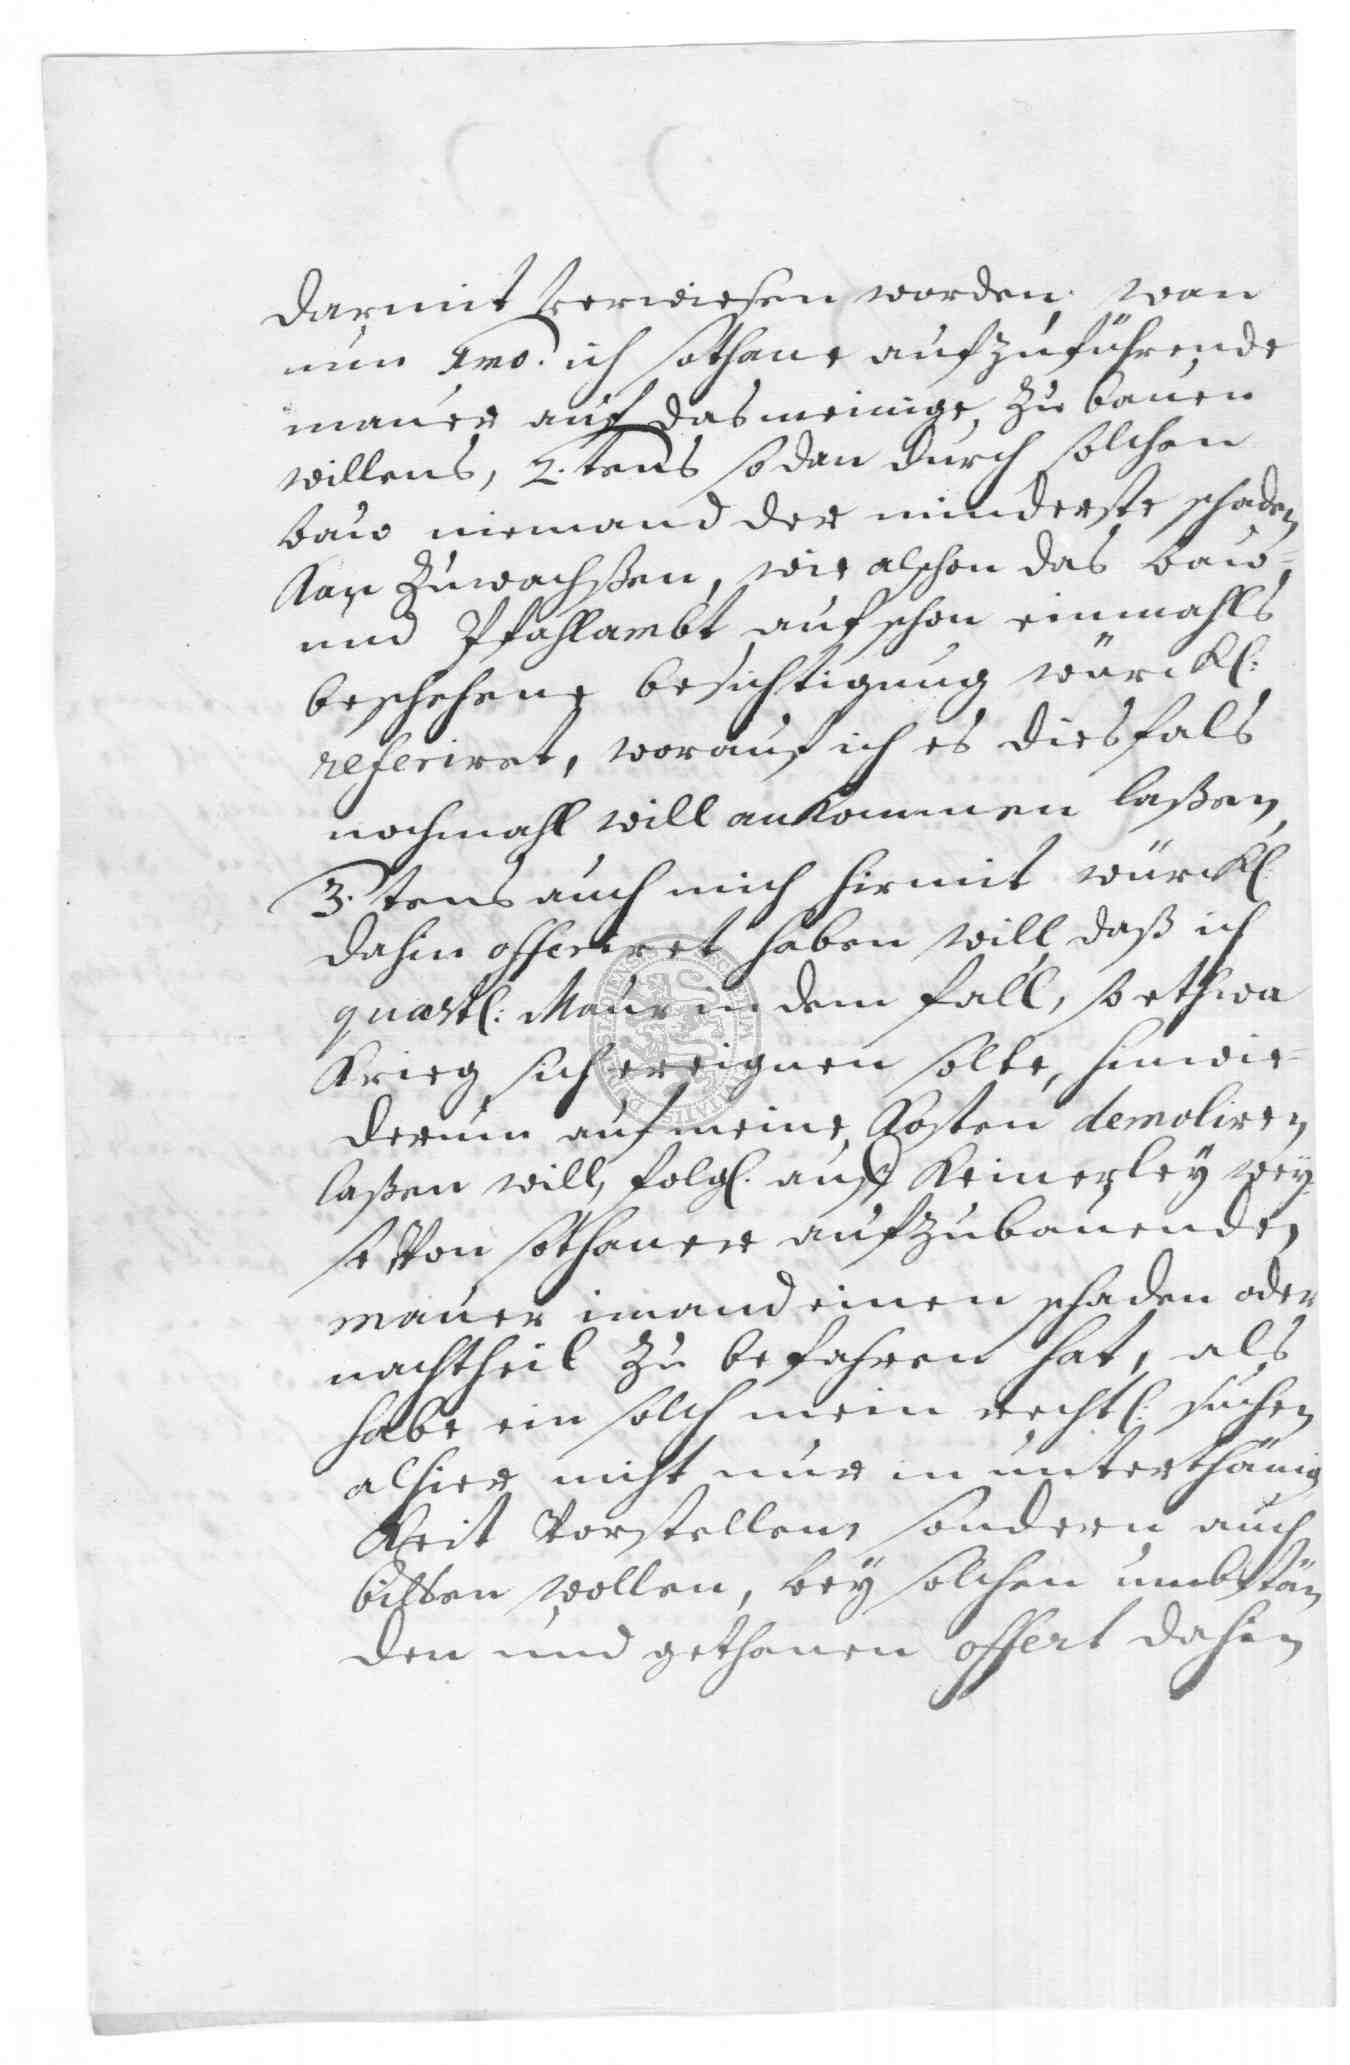 darmit verwiesen worden. wan
nun 1mo. ich sothane aufzuführende
mauer auf das meinige, zu bauen
willens, 2.tens so dan durch solchen
bauw niemand der minderste schaden
kan zuwachßen, wie alschon das bauw-
und Pfahlambt auf schon einmahls
beschehene besichtigung würckl:
referiret, worauf ich es diesfals
nochmahl will ankommen laßen,
3.tens auch mich hirmit würckl:
dahin offeriret haben will, daß ich
quaestl: Maur in dem fall, so ethwa
Krieg sich ereignen solte, hinwie-
derum auf meine Kosten demoliren
laßen will, folgl. auf keinerley wey-
se von sothaner aufzubauenden
mauer imand einen schaden oder
nachtheil zu befahren hat, als
habe ein solch mein rechtl: suchen
alhier nicht nur in unterthänig
keit vorstellen, sondern auch
bitten wollen, bey solchen umbstän
den und gethanen offert dahin